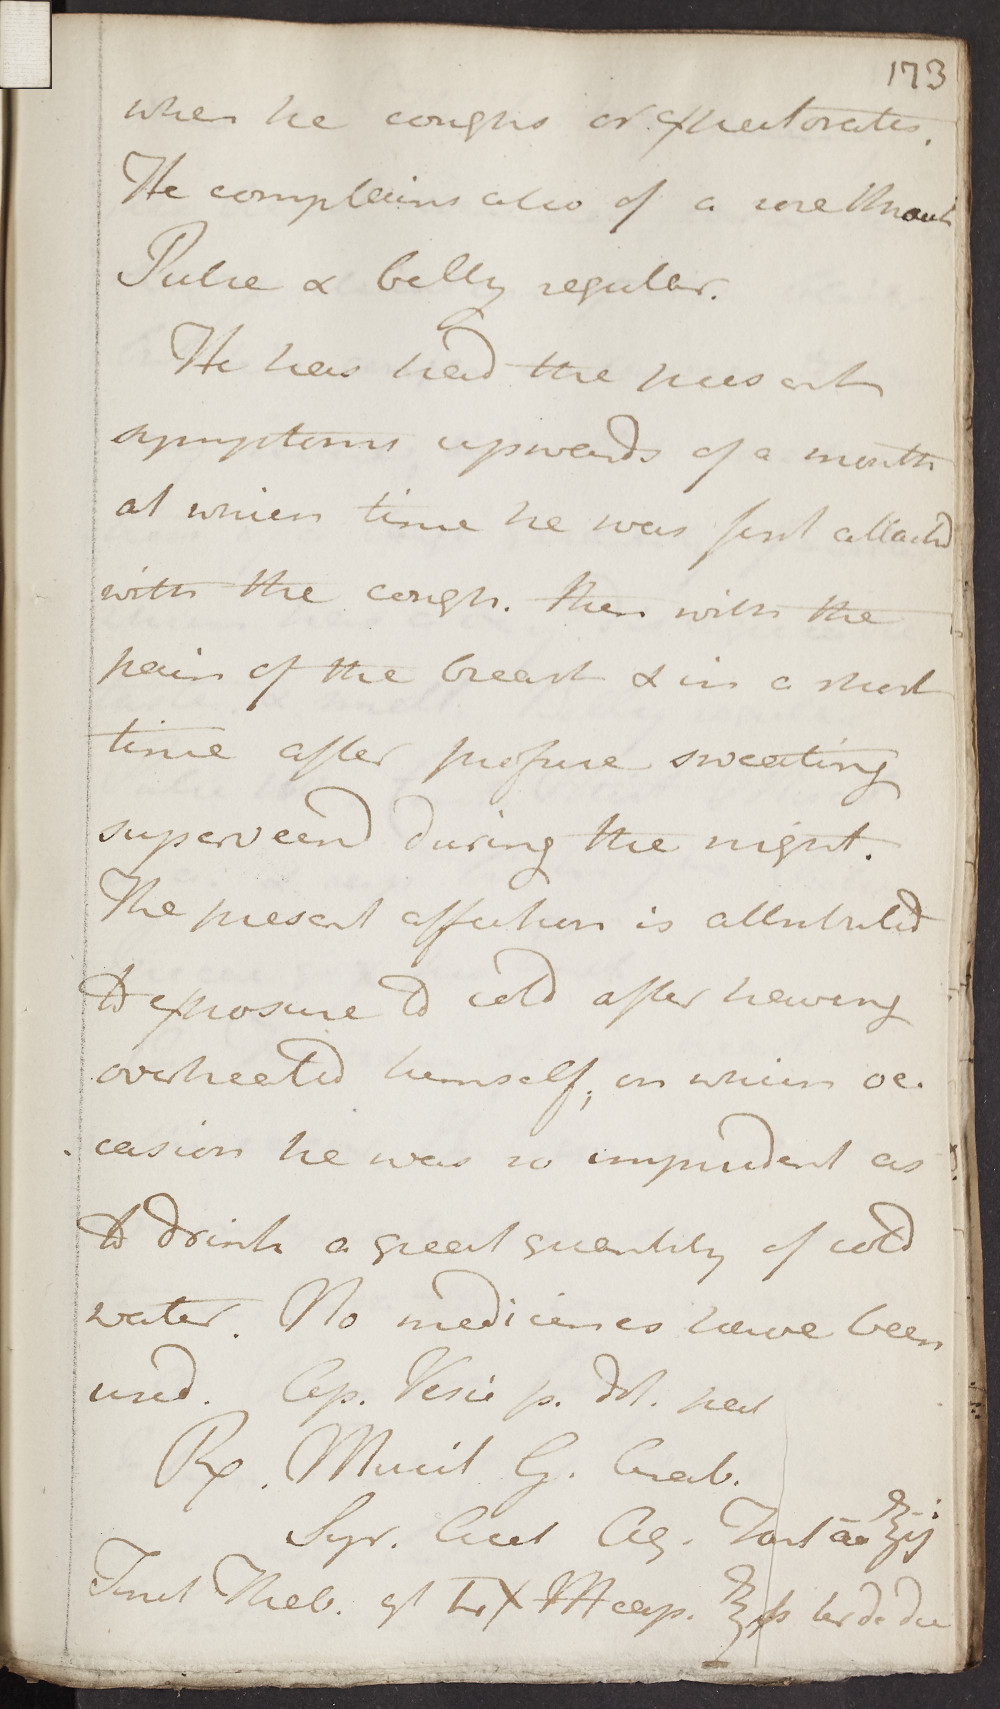 173
when he coughs or expectorates.
He complains also of a sore throat
Pulse & belly regular.
He has had the present
symptoms upwards of a month
at which time he was first attackd
with the cough. then with the
pain of the breast & in a short
time after profuse sweating
superveend during the night.
The present affection is attributed
to exposure to cold after having
overheated himself; on which oc-
casion he was so imprudent as
to drink a great quantity of cold
water. No medicines have been
used. Ap. Vesic p. dol. pect
Rx. Mucil G. Arab.
Syr. Acet Aq. Font āā ℥ij
Tinct Theb. gt cap. ℥ß ter de die